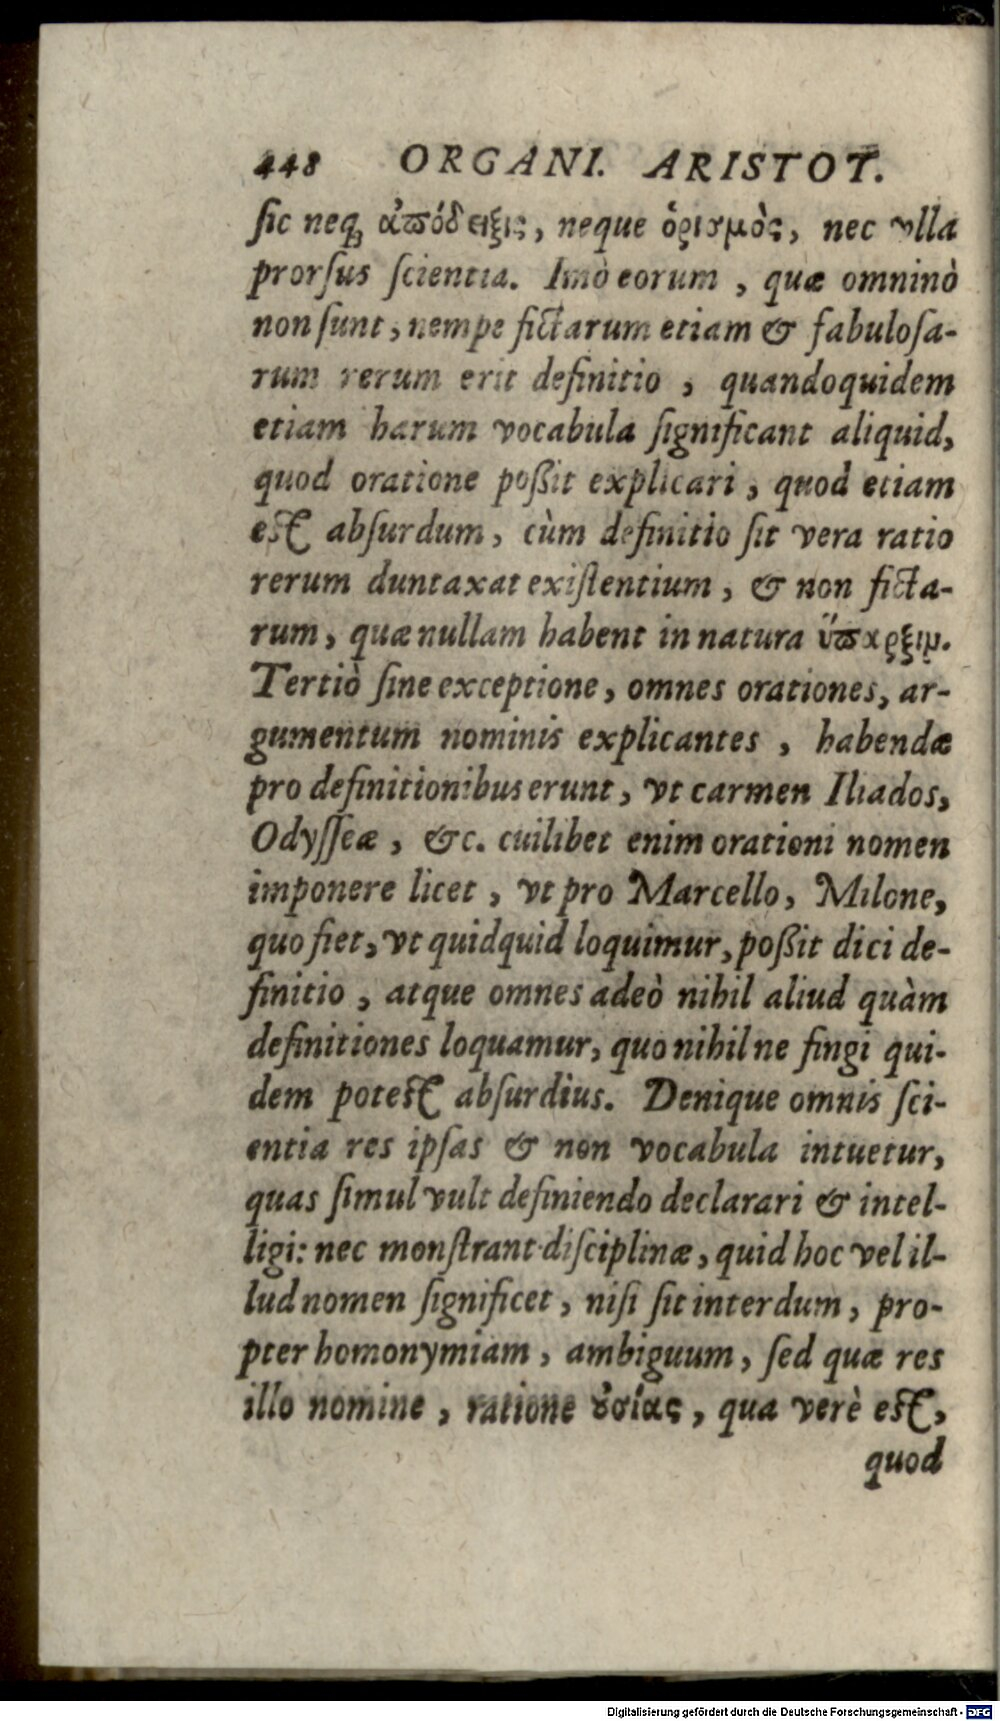 448 ORGANI. ARISTOT.
ſic neq; ἀπόδειξις, neque ὁρισμὸς, nec vlla
prorſus ſcientia. Imò eorum , quæ omninò
non ſunt, nempe fictarum etiam & fabuloſa-
rum rerum erit definitio , quandoquidem
etiam harum vocabula ſignificant aliquid,
quod oratione poßit explicari , quod etiam
eſt abſurdum, cùm definitio ſit vera ratio
rerum duntaxat exiſtentium , & non ficta-
rum, quæ nullam habent in natura ὕπαρξιμ.
Tertiò ſine exceptione, omnes orationes, ar-
gumentum nominis explicantes , habendæ
pro definitionibus erunt, vt carmen Iliados,
Odyſſeæ , &c. cuilibet enim orationi nomen
imponere licet , vt pro Marcello, Milone,
quo fiet, vt quidquid loquimur, poßit dici de-
finitio , atque omnes adeò nihil aliud quàm
definitiones loquamur, quo nihil ne fingi qui-
dem poteſt abſurdius. Denique omnis ſci-
entia res ipſas & non vocabula intuetur,
quas ſimul vult definiendo declarari & intel-
ligi: nec monſtrant diſciplinæ, quid hoc vel il-
lud nomen ſignificet, niſi ſit interdum, pro-
pter homonymiam, ambiguum, ſed quæ res
illo nomine , ratione ȣ̓σίας , qua verè eſt,
quod
Digitalisierung gefördert durch die Deutsche Forschungsgemeinschaft - DFG